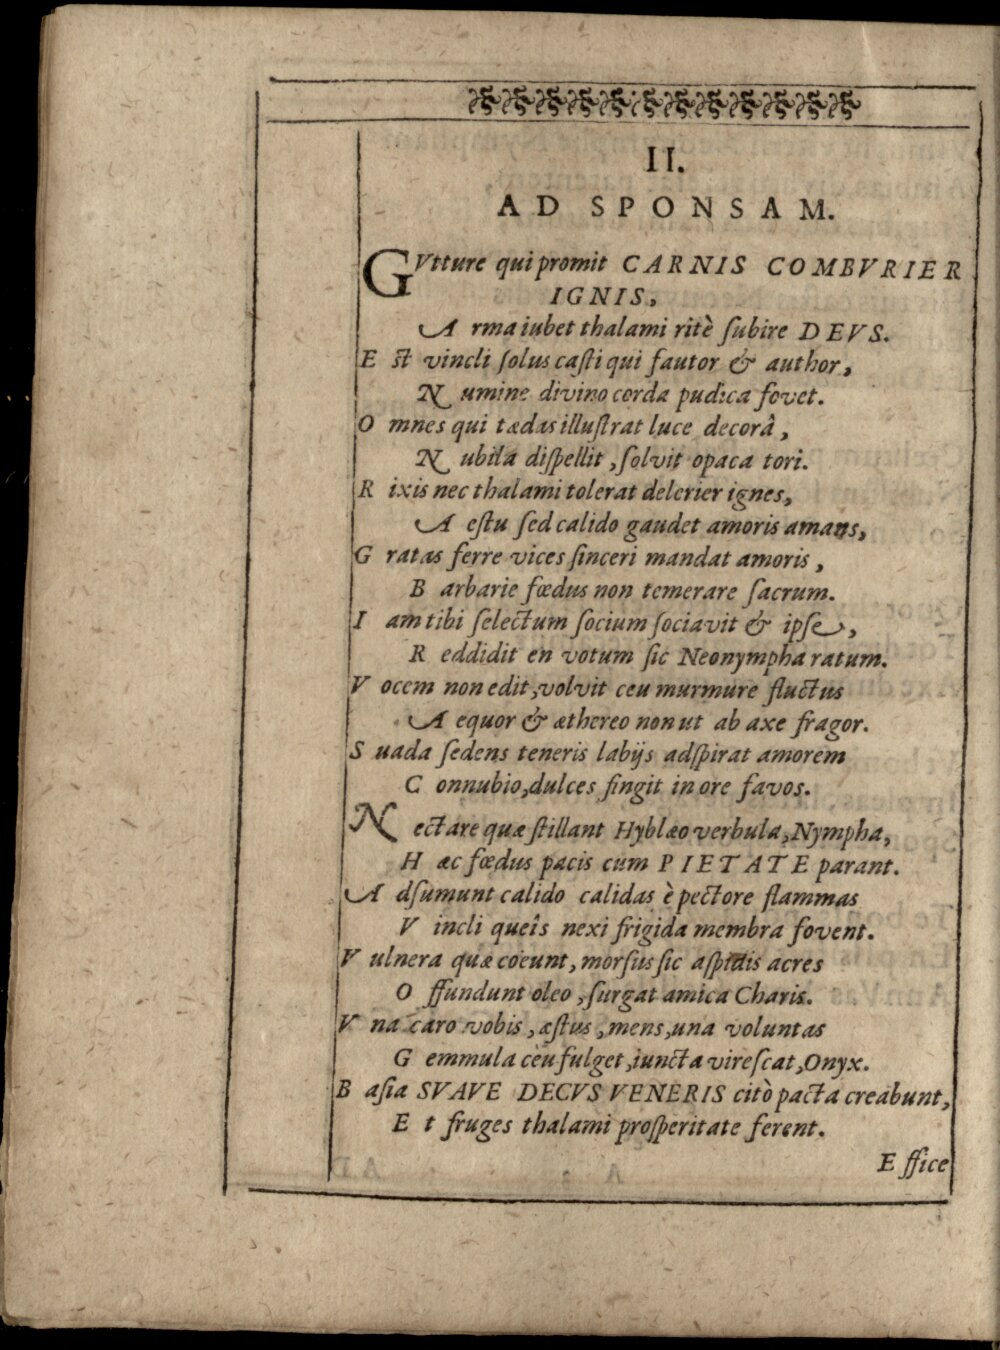 II.
AD SPONSAM.
GVtture qui promit CARNIS COMBVRIER
IGNIS,
A rma iubet thalami ritè ſubire DEVS.
E ſt vincli ſolus caſti qui fautor & author,
N umine divino corda pudica fovet.
O mnes qui tædas illuſtrat luce decorâ,
N ubila diſpellit, ſolvit opaca tori.
R ixis nec thalami tolerat delerier ignes,
A eſtu ſed calido gaudet amoris amans,
G ratas ferre vices ſinceri mandat amoris,
B arbarie fœdus non temerare ſacrum.
I am tibi ſelectum ſocium ſociavit & ipſe,
R eddidit en votum ſic Neonympha ratum.
V ocem non edit, volvit ceu murmure fluctus
A equor & æthereo non ut ab axe fragor.
S uada ſedens teneris labijs adſpirat amorem
C onnubio, dulces fingit in ore favos.
N ectare quæ ſtillant Hyblæo verbula, Nympha,
H æc fœdus pacis cum PIETATE parant.
A dſumunt calido calidas è pectore flammas
V incli queîs nexi frigida membra fovent.
V ulnera quæ coëunt, morſus ſic aſpidis acres
O ffundunt oleo, ſurgat amica Charis.
V na caro vobis, æſtus, mens, una voluntas
G emmula cèu fulget, iuncta vireſcat, Onyx.
B aſia SVAVE DECVS VENERIS citò pacta creabunt,
E t fruges thalami proſperitate ferent.
E ffice